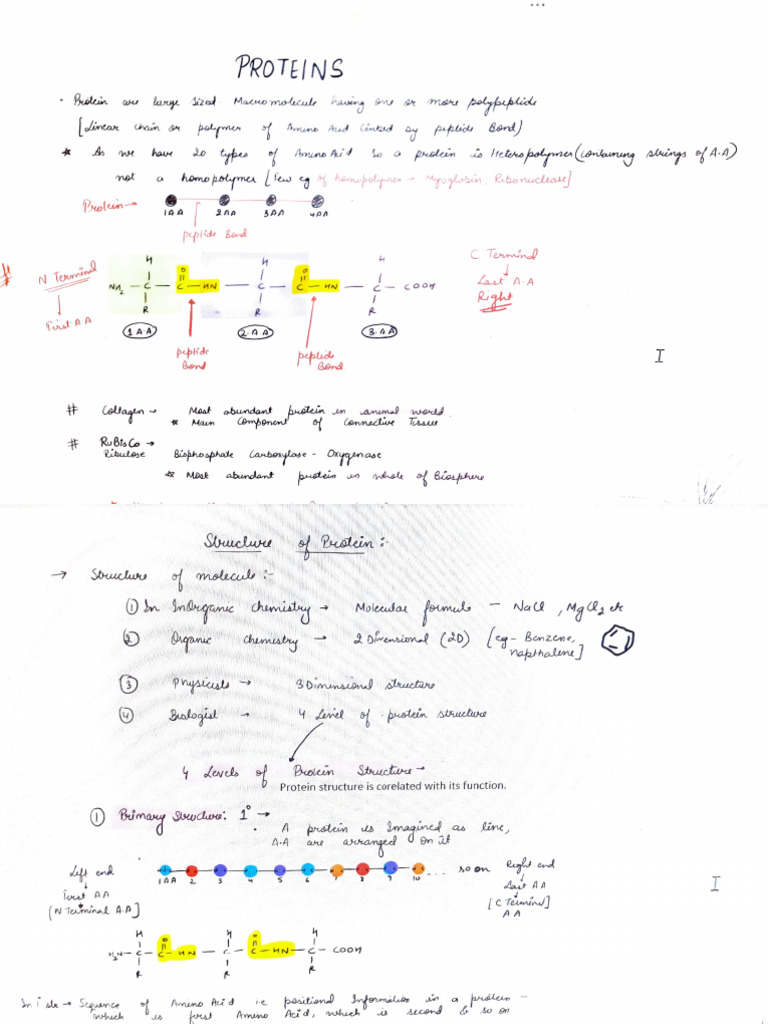 PROTEINS
• Protein are large sized Macromolecule having one or more polypeptide
[Linear chain or polymer of Amino Acid linked by peptide Bond)
* As we have 20 types of Amino Acid so a protein is Heteropolymer (containing strings of A.A)
not a homopolymer [Few eg of homopolymer → Myoglobin, Ribonuclease]
Protein →
1AA 2AA 3AA 4AA
peptide Bond
# N Terminal
First AA
H O H O H
NH2 — C — C — HN — C — C — HN — C — COOH
R R R
1 A A 2. A A 3. A A
peptide Bond
peptide Bond
C Terminal
Last A.A
Right
I
# Collagen → Most abundant protein in animal world.
* Main Component of Connective Tissue
# RuBisCo →
Ribulose Bisphosphate Carboxylase - Oxygenase
* Most abundant protein in whole of Biosphere
Structure of Protein :-
→ Structure of molecule :-
① In InOrganic chemistry → Molecular formula — NaCl, MgCl2 etc
② Organic chemistry → 2 Dimensional (2D) [eg - Benzene, napthalene]
③ Physicists → 3 Dimensional structure
④ Biologist → 4 Level of protein structure
4 Levels of Protein Structure →
Protein structure is corelated with its function.
① Primary structure: 1° →
• A protein is Imagined as line,
A.A are arranged on it
Left end
First AA
[N Terminal A.A]
1AA 2 3 4 5 6 7 8 9 10 .... so on
Right end
Last AA
[C Terminal]
AA
I
H O H O H
H2N — C — C — HN — C — C — HN — C — COOH
R R R
In 1 str → Sequence of Amino Acid i.e positional Information in a protein -
which is first Amino Acid, which is second & so on